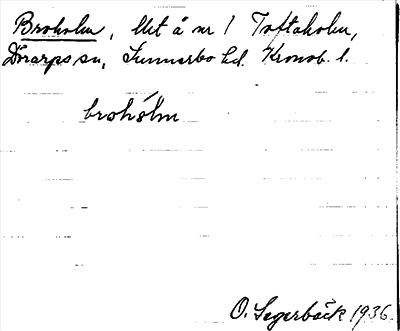 Broholm, lht å nr 1 Toftaholm,
Dörarps sn, Sunnerbo hd. Kronob. l.
brohólm
O. Segerbäck 1936.